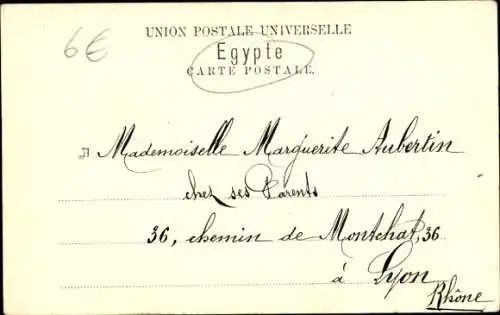 6€
UNION POSTALE UNIVERSELLE
Egypte
CARTE POSTALE.
Mademoiselle Marguerite Aubertin
chez ses Parents
36, chemin de Montchat, 36
à Lyon
Rhône